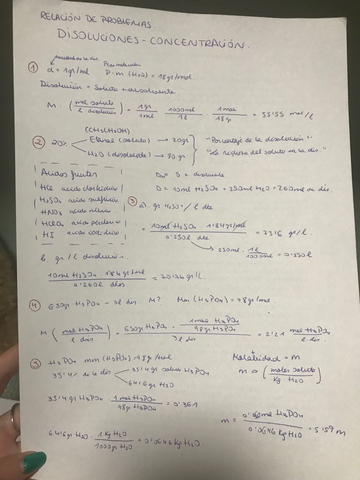 RELACIÓN DE PROBLEMAS
DISOLUCIONES - CONCENTRACIÓN.
① d = 1gr/ml P.m (H2O) = 18gr/mol
Disolución = Soluto + disolvente
M (mol soluto / l disolución) = 1gr / 1ml · 1000ml / 1l · 1mol / 18gr = 55'55 mol/l
② 20%
(CH3CH2OH)
Etanol (soluto) → 20gr
H2O (disolvente) → 80gr
"Porcentaje de la disolución"
Ácidos fuertes
HCl ácido clorhídrico
H2SO4 ácido sulfúrico
HNO3 ácido nítrico
HClO4 ácido perclórico
HI ácido
D = disolvente
D = 10ml H2SO4 + 250ml H2O = 260ml de dis
③ a. gr H2SO4 / l dte
= 10ml H2SO4 · 1'84gr/ml / 0'250l dte = gr/l
250ml · 1l / 1000ml = 0'250l
b. gr / l disolución.
10ml H2SO4 · 1'84gr/ml / 0'260l diss = gr/l.
④ 630gr H3PO4 - 3l dis M? Mm (H3PO4) = 98gr/mol
M (mol H3PO4 / l dis) = 630gr H3PO4 / 3l dis · 1mol H3PO4 / 98gr H3PO4 = 2'21 mol H3PO4 / l dis
⑤ H3PO4 mm (H3PO4) = 98gr/mol
35'4% de la dis
35'4gr soluto H3PO4
64'6gr H2O
Molalidad = m
m = (moles soluto / Kg H2O)
35'4gr H3PO4 · 1mol H3PO4 / 98gr H3PO4 = 0'361
64'6gr H2O · 1Kg H2O / 1000gr H2O = 0'0646 Kg H2O
m = mol H3PO4 / 0'0646 Kg H2O = 5'59 m